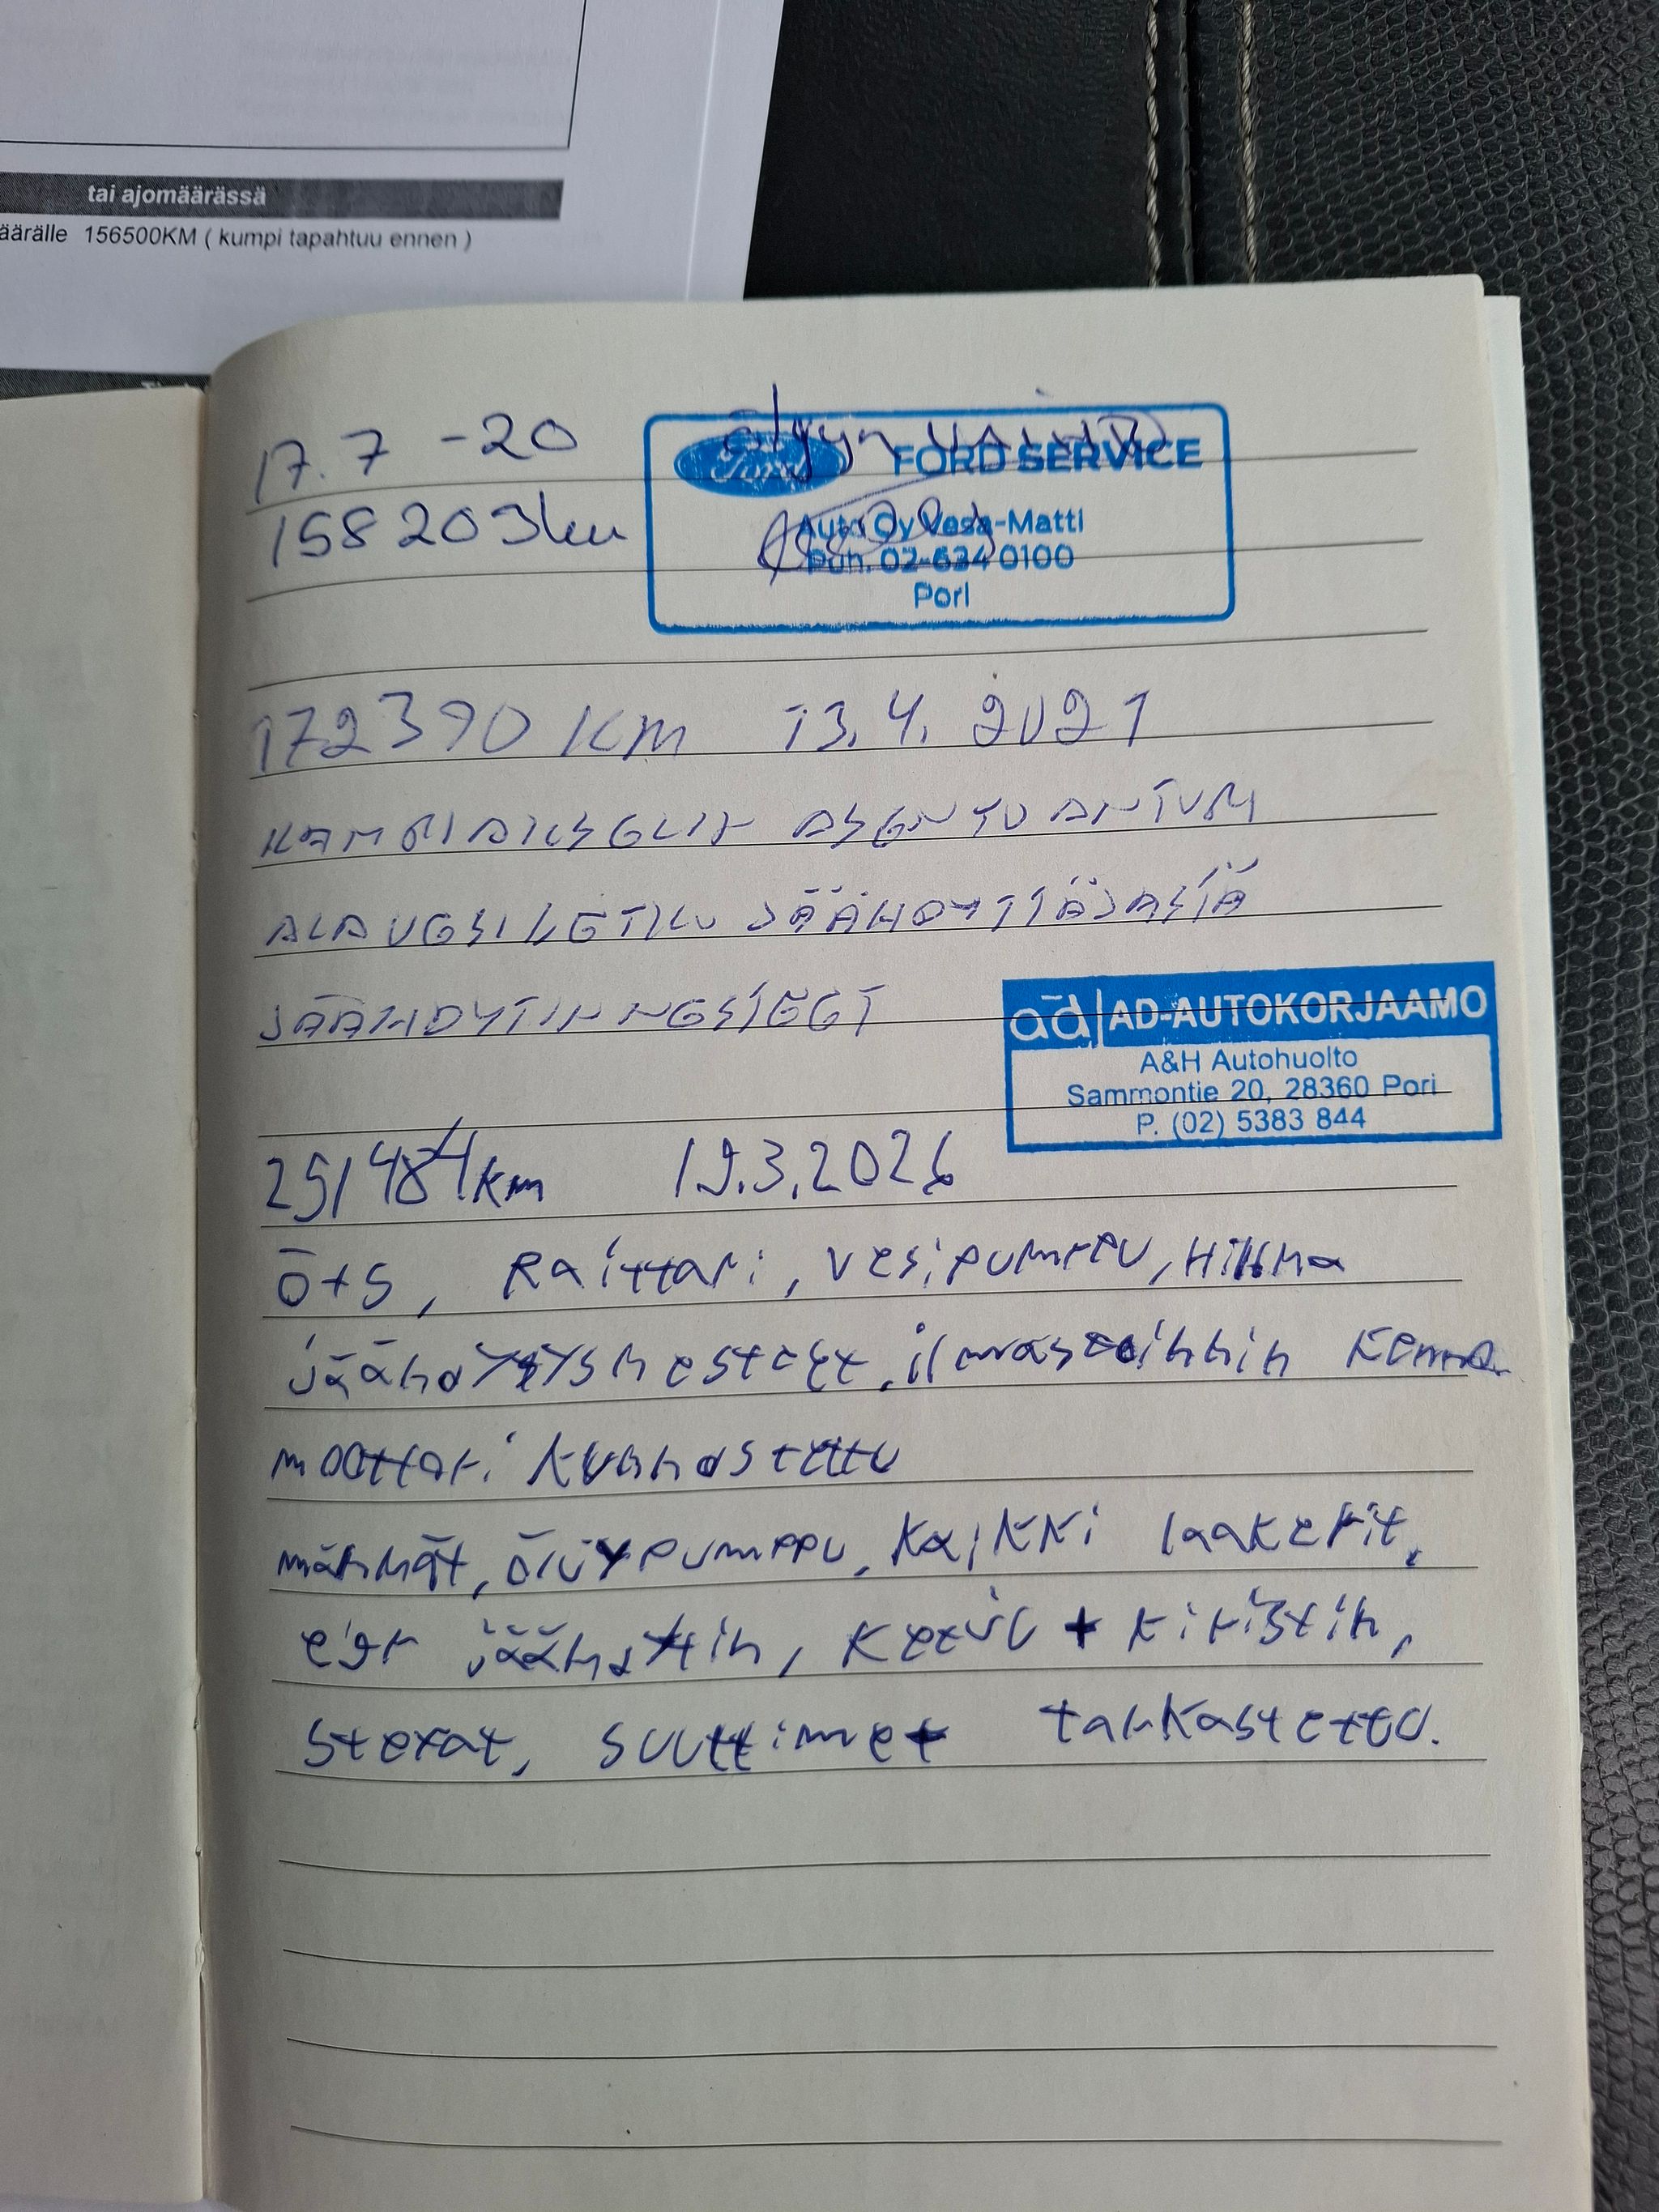 tai ajomäärässä
äärälle 156500KM ( kumpi tapahtuu ennen )
17.7 -20 öljyn vaihto
158 203km
Ford FORD SERVICE
Auto Oy Vesa-Matti
Puh. 02-634 0100
Pori
172390 KM 13.4.2021
KAMPIAKSELIN ASENTO ANTURI
ALAVESILETKU JÄÄHDYTTÄJÄSTÄ
JÄÄHDYTINNESTEET
ad AD-AUTOKORJAAMO
A&H Autohuolto
Sammontie 20, 28360 Pori
P. (02) 5383 844
251484km 19.3.2026
Ö+S, Raittari, vesipumppu, Hihna
jäähdytysnesteet, ilmastoinnin
moottori kunnostettu
männät, öljypumppu, kaikki laakerit,
egr jäähdytin, ketju + kiristin,
suuttimet tarkastettu.